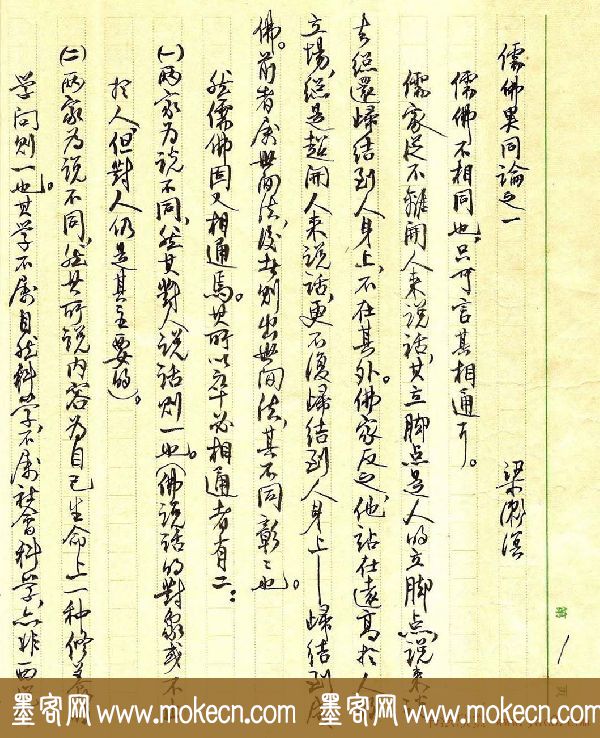 儒佛異同論之一
梁漱溟
儒佛不相同也,只可言其相通耳。
儒家從不離開人來說話,其立脚点是人的立脚点,說來說
去總還歸結到人身上,不在其外。佛家反之,他站在遠高於人的
立場,總是超開人來說話,更不復歸結到人身上—歸結到成
佛。前者属世間法,後者則出世間法,其不同彰彰也。
然儒佛固又相通焉。其所以卒必相通者有二:
(一)两家为说不同,然其對人说话则一也。(佛说话的對象或不止
於人,但對人仍是其主要的)。
(二)两家为说不同,然其所说内容为自己生命上一种修养的
学问则一也。其学不属自然科学,不属社会科学,亦非西
第 1 页
墨客网 www.mokecn.com 墨客网 www.mokecn.com